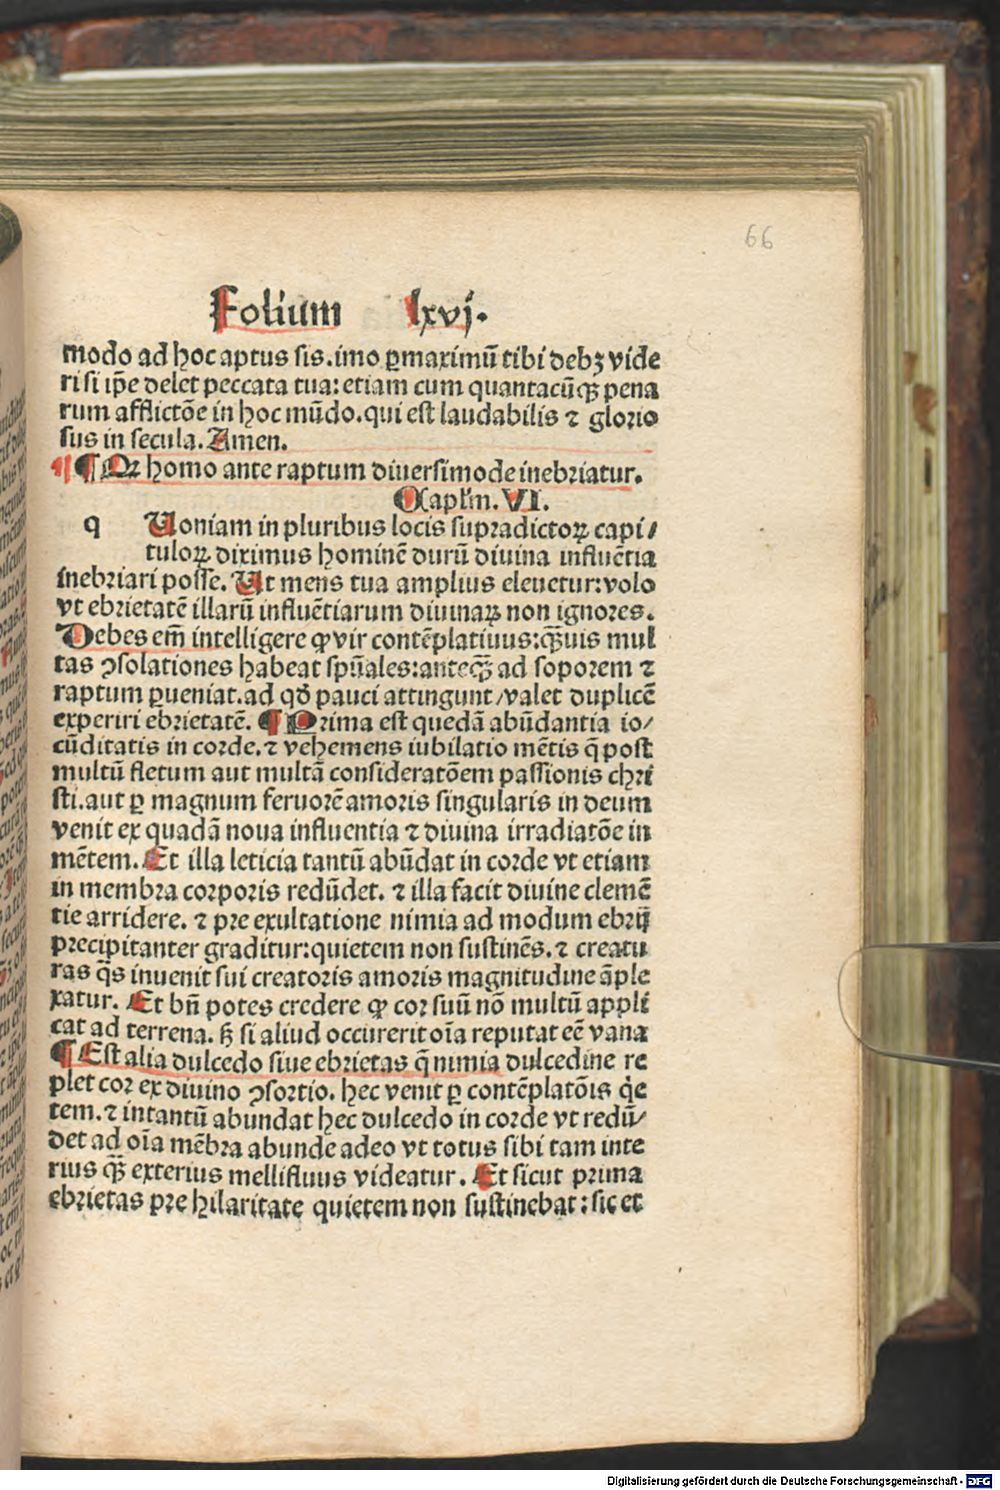 66
Folium lxvj.
modo ad hoc aptus sis.imo ꝑmaximū tibi debꝫ vide
ri si ip̄e delet peccata tua: etiam cum quantacūqꝫ pena
rum afflictōe in hoc mūdo.qui est laudabilis ⁊ glorio
sus in secula. Amen.
¶ ¶ Qꝛ homo ante raptum diuersimode inebriatur.
Caplm̄. VI.
q Uoniam in pluribus locis supradictoꝝ capi/
tuloꝝ diximus hominē durū diuina influētia
inebriari posse. Ut mens tua amplius eleuetur: volo
vt ebrietatē illarū influētiarum diuinaꝝ non ignores.
Debes em̄ intelligere ꝙ vir contēplatiuus: qꝫuis mul
tas ꝯsolationes habeat spūales: anteqꝫ ad soporem ⁊
raptum ꝑueniat.ad qd̄ pauci attingunt/valet duplicē
experiri ebrietatē. ¶ Prima est quedā abūdantia io/
cūditatis in corde.⁊ vehemens iubilatio mētis q̄ post
multū fletum aut multā consideratōem passionis chri
sti.aut ꝑ magnum feruorē amoris singularis in deum
venit ex quadā noua influentia ⁊ diuina irradiatōe in
mētem. Et illa leticia tantū abūdat in corde vt etiam
in membra corporis redūdet. ⁊ illa facit diuine clemē
tie arridere. ⁊ pre exultatione nimia ad modum ebrij
precipitanter graditur: quietem non sustinēs. ⁊ creatu
ras q̄s inuenit sui creatoris amoris magnitudine āple
xatur. Et bn̄ potes credere ꝙ cor suū nō multū appli
cat ad terrena. sꝫ si aliud occurerit oīa reputat eē vana
¶ Est alia dulcedo siue ebrietas q̄ nimia dulcedine re
plet cor ex diuino ꝯsortio. hec venit ꝑ contēplatōis q̇e
tem. ⁊ intantū abundat hec dulcedo in corde vt redū/
det ad oīa mēbra abunde adeo vt totus sibi tam inte
rius qꝫ exterius mellifluus videatur. Et sicut prima
ebrietas pre hilaritate quietem non sustinebat: sic et
Digitalisierung gefördert durch die Deutsche Forschungsgemeinschaft - DFG